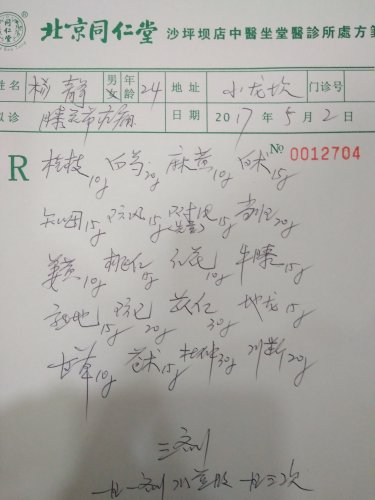 北京同仁堂 沙坪坝店中醫坐堂醫診所處方箋
姓名 杨静 男 女 年龄 24 地址 小龙坎 门诊号
拟诊 膝关节疼痛 日期 2017年5月2日
R № 0012704
桂枝10g 白芍20g 麻黄10g 白术15g
知母15g 防风15g 15g 当归20g
姜黄10g 桃仁15g 红花10g 牛膝15g
熟地15g 防己20g 苡仁30g 地龙15g
甘草10g 苍术15g 杜仲30g 川断20g
三剂
一日一剂 水煎服 一日三次